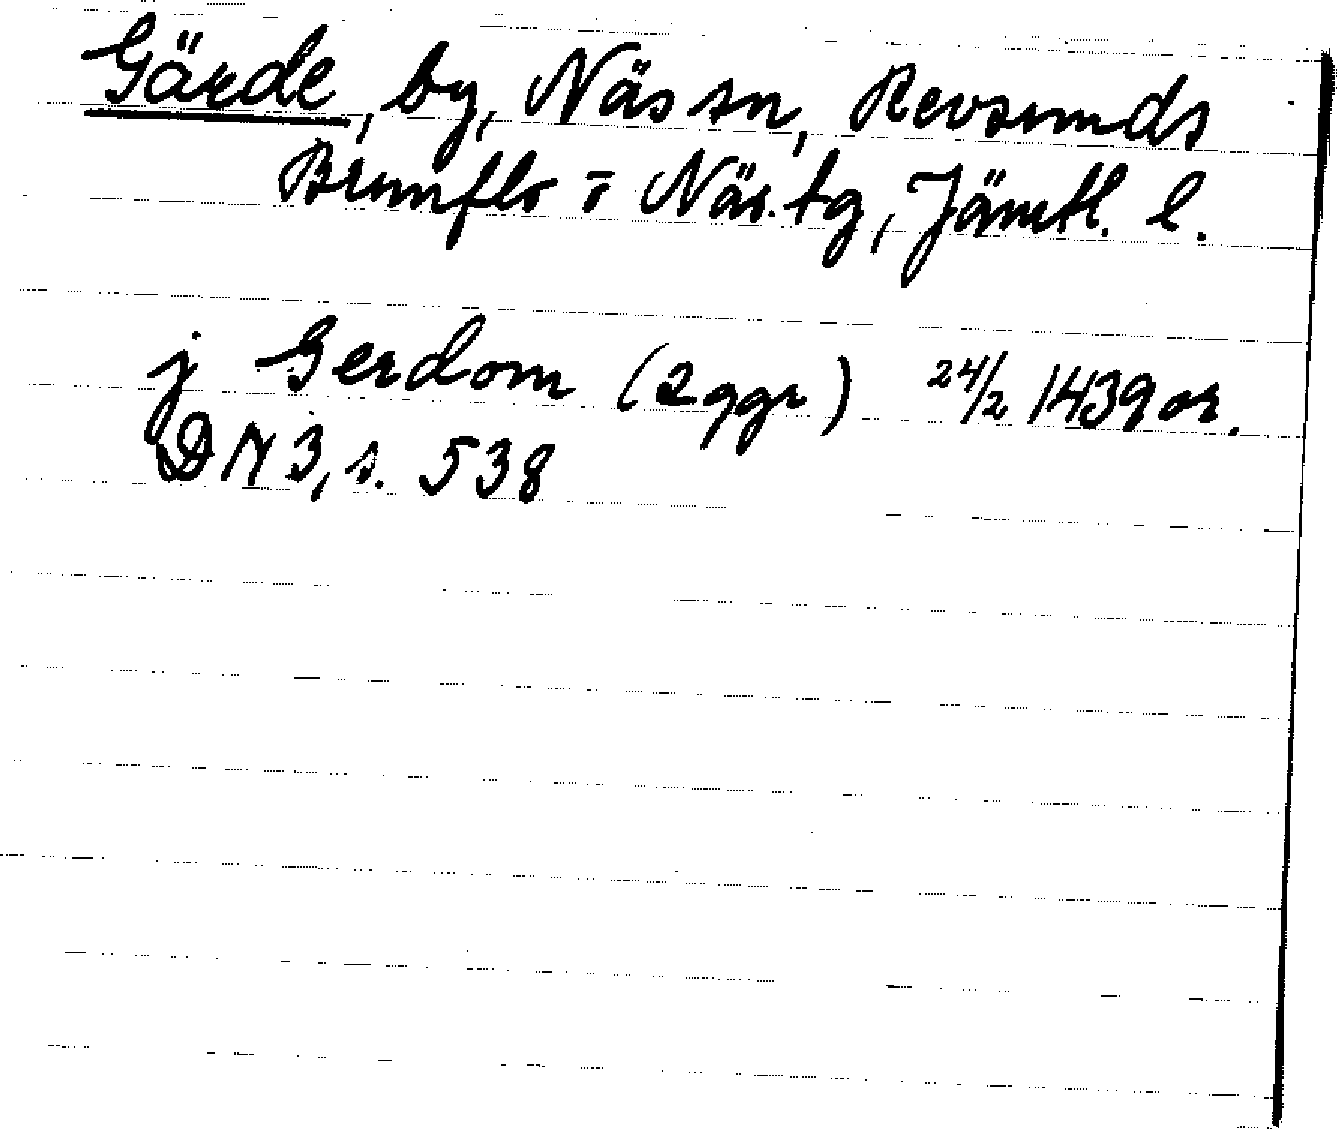 Gärde, by, Näs sn, Revsunds
Brunflo o Näs. tg, Jämtl. l.
j Gerdom (2 ggr) 24/2 1439 or.
DN 3, s. 538